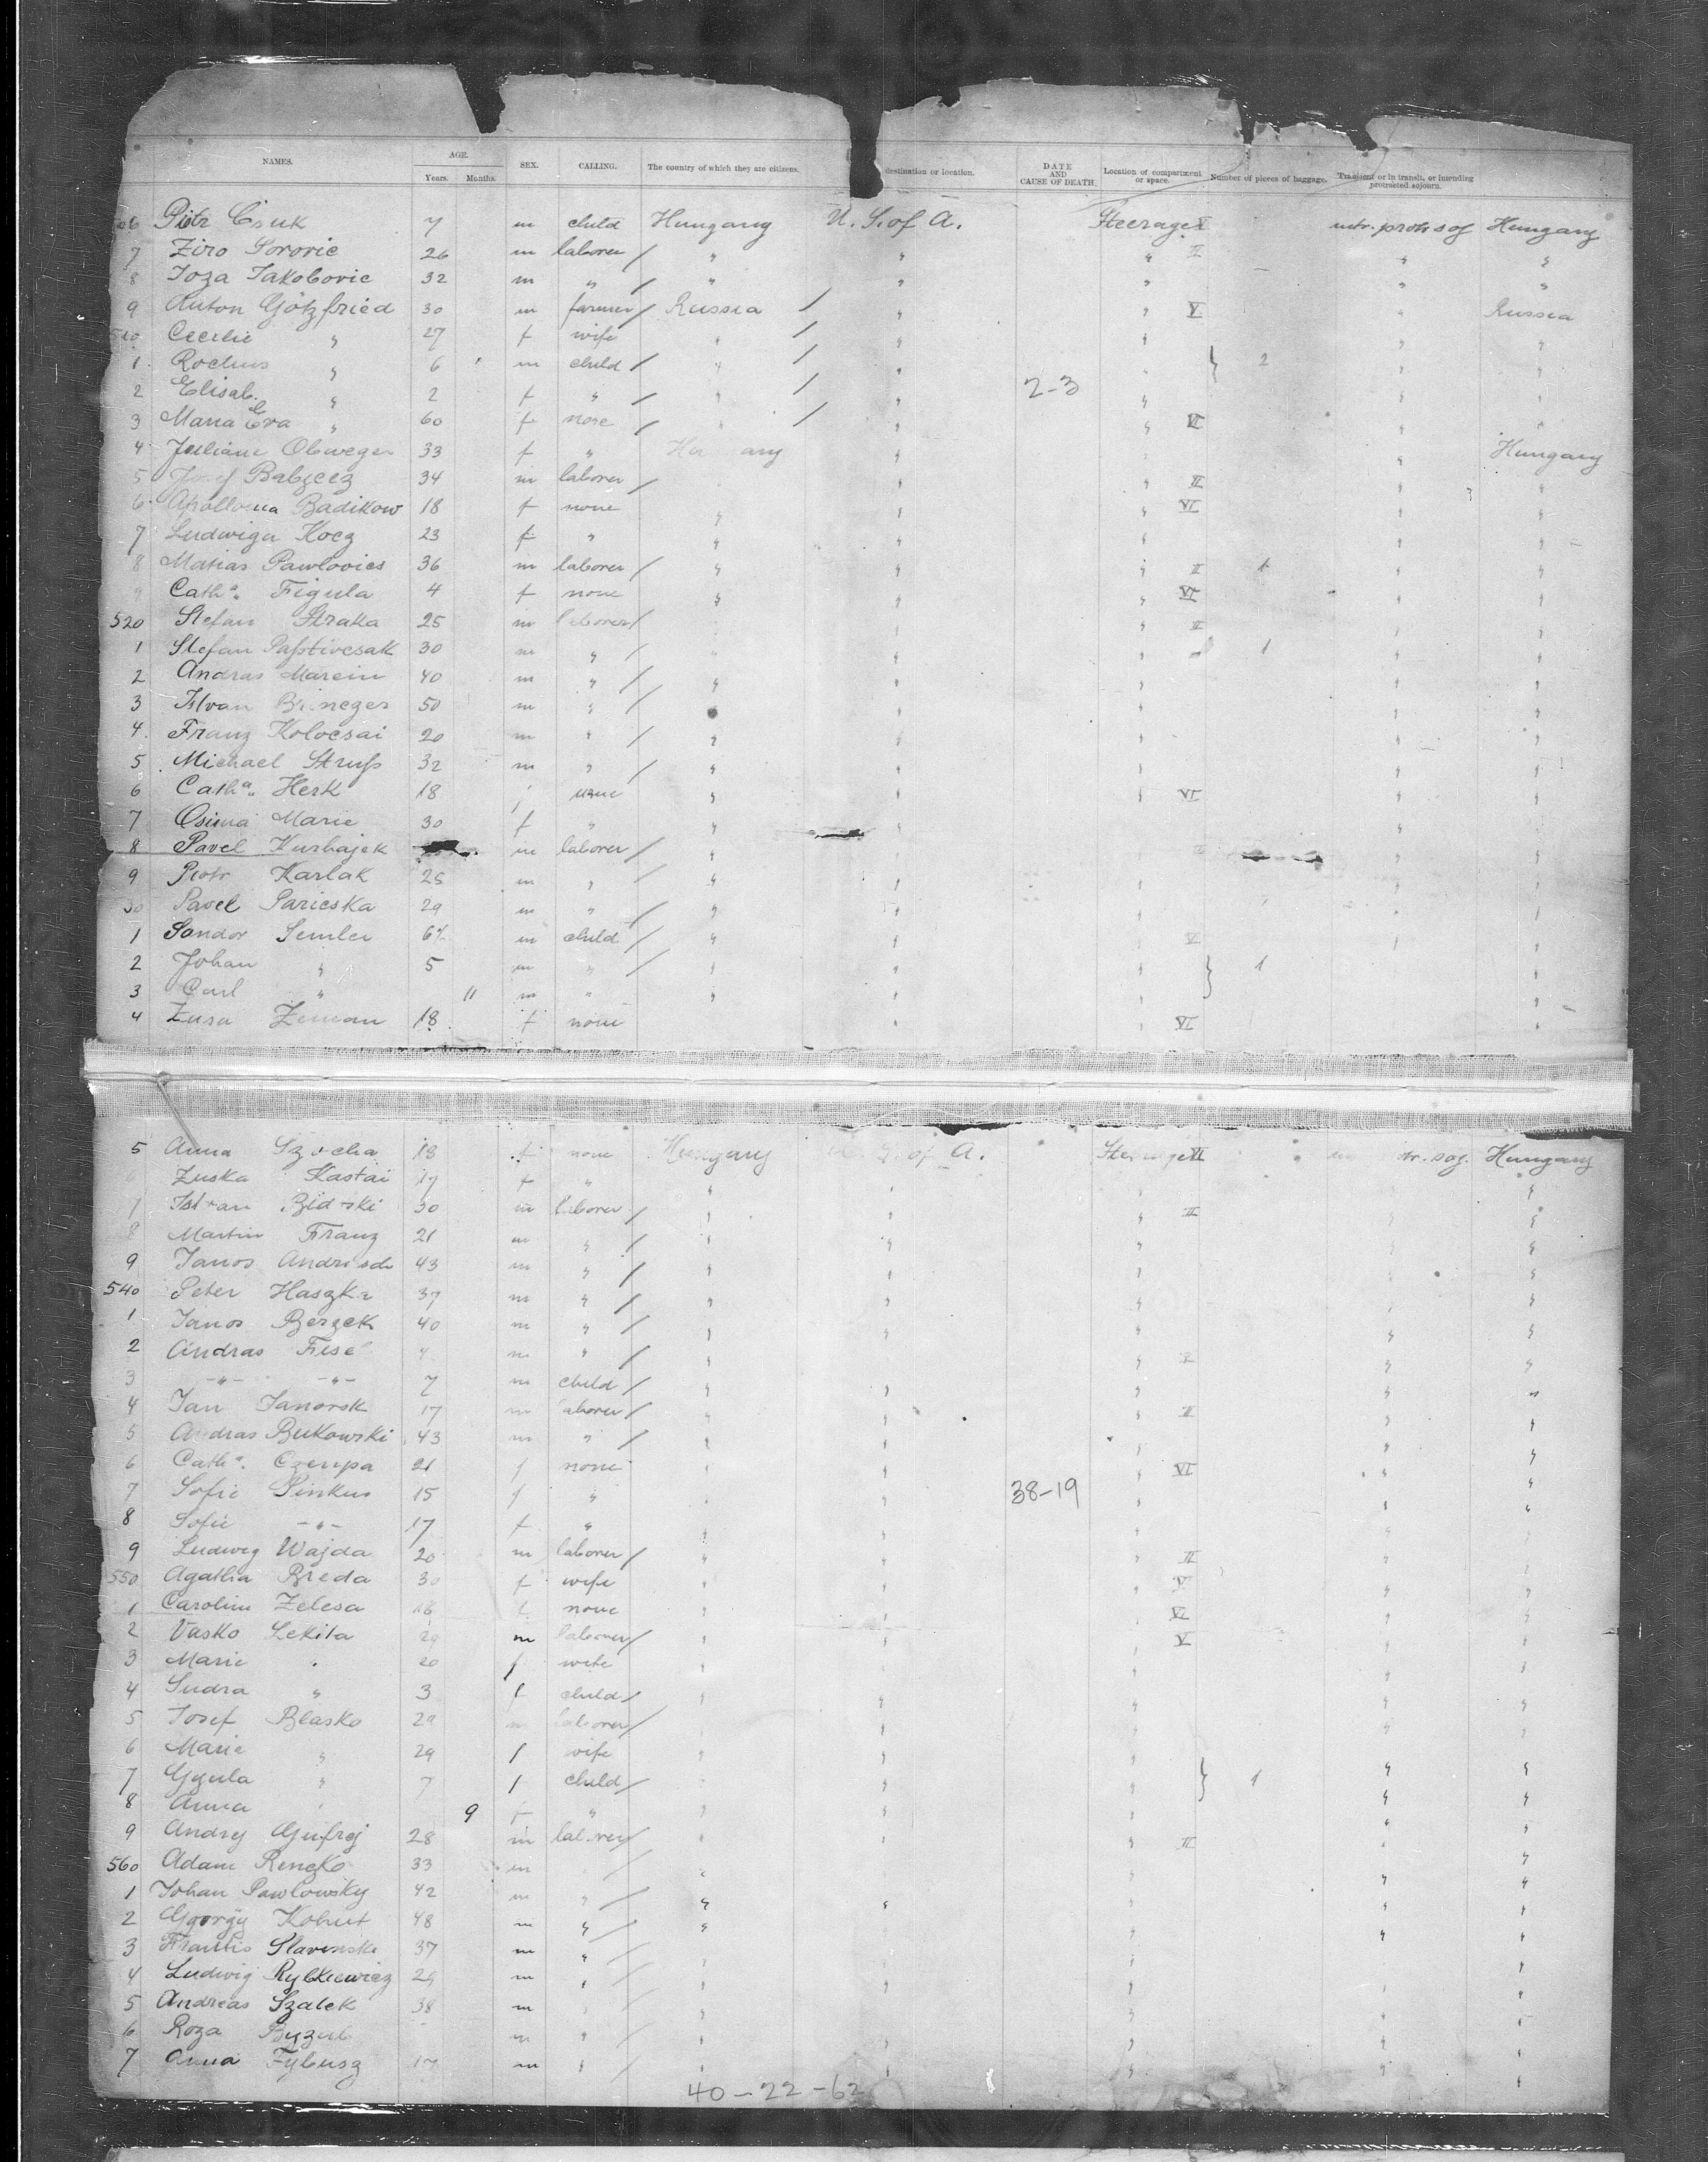 NAMES. AGE. Years. Months. SEX. CALLING. The country of which they are citizens. destination or location. DATE AND CAUSE OF DEATH. Location of compartment or space. Number of pieces of baggage. Transient or in transit, or intending protracted sojourn.
Piotr Csuk 7 m child Hungary U. S. of A. Steerage V intr. protr. soj Hungary
7 Ziro Sorovic 26 m laborer / " " " II " "
8 Joza Jakobovic 32 m " / " " " " "
9 Anton Götzfried 30 m farmer / Russia / " " V " Russia
510 Cecilie " 27 f wife " / " " " "
1 Rochus " 6 m child / " / " " } 2 " "
2 Elisab. " 2 f " / " / " 2-3 " " "
3 Maria Eva " 60 f none / " / " " VI " "
4 Juliane Obweger 33 f " Hungary " " " Hungary
5 Josef Babjecz 34 m laborer / " " II " "
6 Apollonia Badikow 18 f none " " " VI " "
7 Ludwiga Kocz 23 f " " " " " "
8 Matias Pawlovics 36 m laborer / " " " II 1 " "
9 Cath.a Figula 4 f none " " " VI " "
520 Stefan Straka 25 m laborer / " " " II " "
1 Stefan Paßtivcsak 30 m " / " " " 1 " "
2 Andras Marcin 40 m " / " " " " "
3 Istvan 50 m " / " " " "
4 Franz Kolocsai 20 m " / " " " " "
5 Michael Struß 32 m " / " " " " "
6 Cath.a Herk 18 f none " " " VI " "
7 Osima Marie 30 f " " " "
8 Pavel Kurhajek m laborer / " " "
9 Piotr Karlak 25 m " / " " " "
30 Pavel Paricska 29 m " / " " " "
1 Sandor Semler 6½ m child / " " V " "
2 Johan " 5 m " / " " " } 1 "
3 Carl " 11 m " " " " "
4 Zusa Zeman 18 f none " " VI "
5 Anna Szocha 18 f none Hungary U. S. of A. Steerage VI intr. protr. soj. Hungary
6 Zuska Kastai 17 f " " " " " "
7 Istvan 30 m laborer / " " " II " "
8 Martin Franz 21 m " / " " " " "
9 Janos 43 m " / " " " " "
540 Peter Haszka 37 m " / " " " " "
1 Janos Berzek 40 m " / " " " " "
2 Andras m " / " " " "
3 -"- -"- 7 m child / " " " " "
4 Jan Janorsk 17 m laborer / " " " II " "
5 Andras Bukowski 43 m " / " " " " "
6 Cath.a Czempa 21 f none " " " VI " "
7 Sofie Pinkus 15 f " " " 38-19 " " "
8 Sofie -"- 17 f " " " " "
9 Ludwig Wajda 20 m laborer / " " " II " "
550 Agatha Breda 30 f wife " " " V " "
1 Carolin Zelesa 18 f none " " VI " "
2 Vasko Lekita 29 m laborer / " " V " "
3 Marie " 20 f wife " " " "
4 Sudra " 3 f child / " " " " "
5 Josef Blasko 29 m laborer / " " " "
6 Marie " 29 f wife " " " "
7 Gyula " 7 f child / " " } 1 " "
8 Anna " 9 f " " " " " "
9 Andrej 28 m laborer / " " " II " "
560 Adam Renczko 33 m / " " " "
1 Johan Pawlowsky 42 m " / " " " " "
2 György Kohut 48 m " / " " " "
3 37 m " / " " "
4 Ludwig Rybkiewicz 29 m " / " " " " "
5 Andreas Szalek 38 m " / " " " "
6 Roza m " / " " " " "
7 Anna Fybusz 17 m " / " " " " "
40-22-62